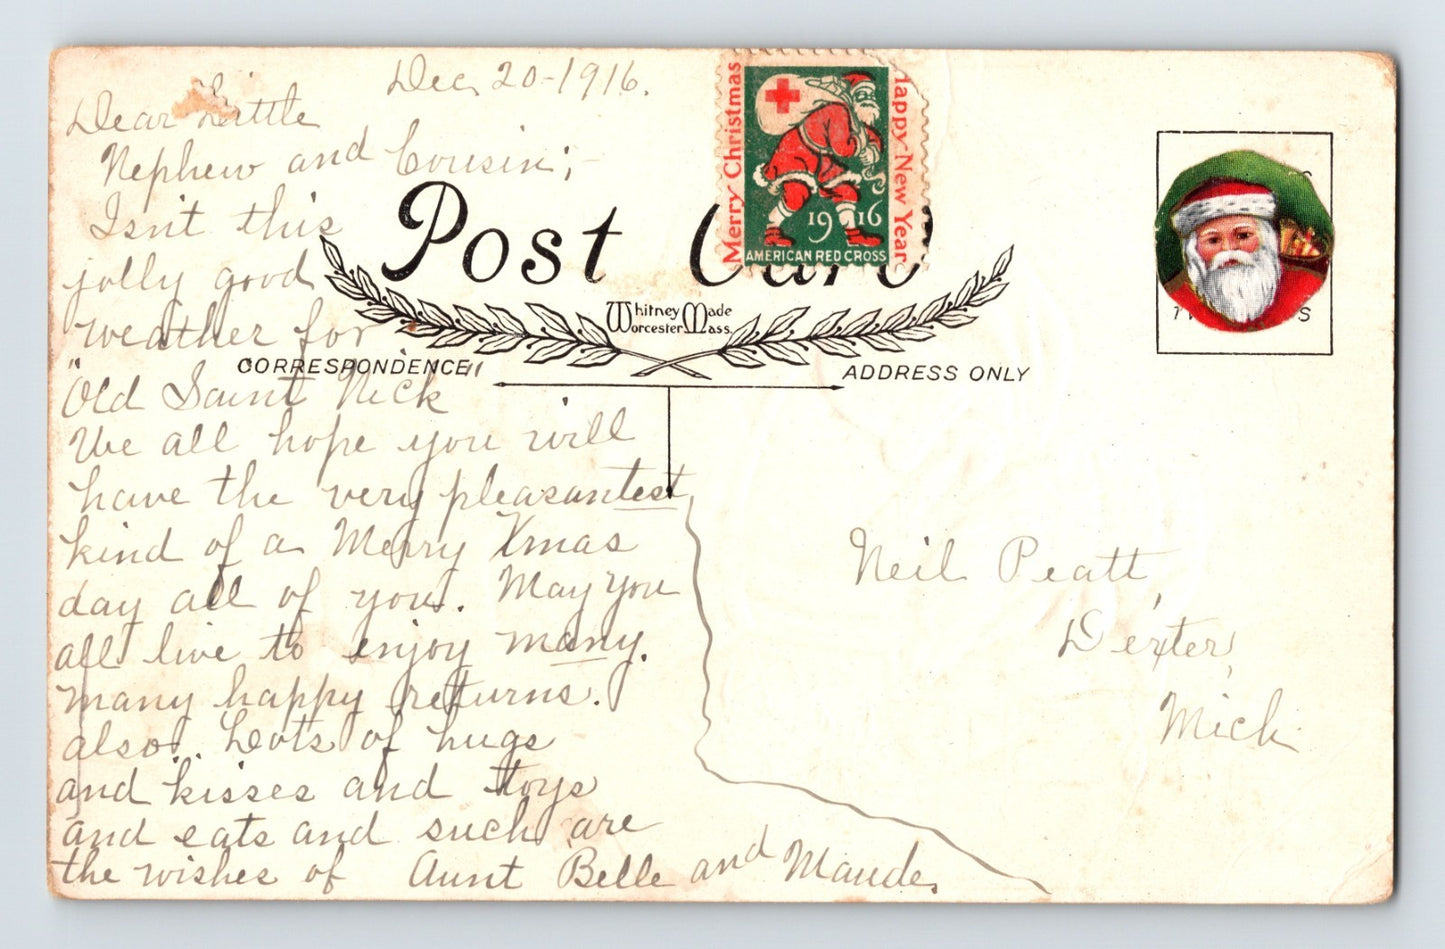 Dec, 20-1916.
Dear Little
Nephew and Cousin;-
Isn't this
jolly good
weather for
"Old Saint Nick"
We all hope you will
have the very pleasantest
kind of a Merry Xmas
day all of you. May you
all live to enjoy many,
many happy returns.
also. Lots of hugs
and kisses and toys
and eats and such are
the wishes of Aunt Belle and Maude.
Post Card
Whitney Made
Worcester Mass.
CORRESPONDENCE
ADDRESS ONLY
Merry Christmas
Happy New Year
1916
AMERICAN RED CROSS
Neil Peatt,
Dexter,
Mich.